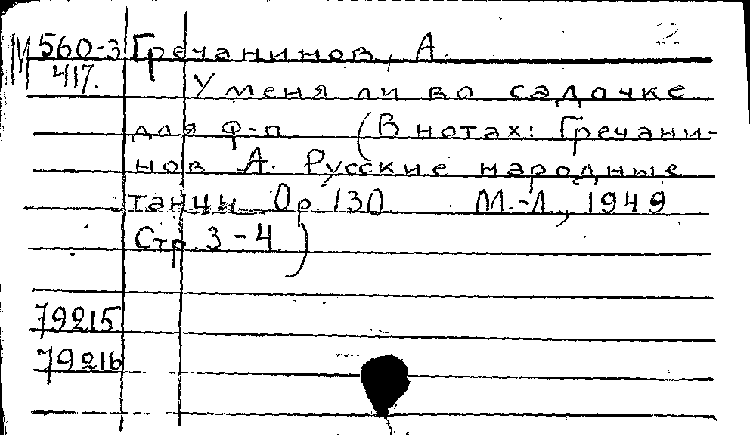 М 560-3 Гречанинов, А.
417. У меня ли во садочке
для ф-п (В нотах: Гречани-
нов А. Русские народные
танцы Ор 130 М.-Л, 1949
Стр. 3-4)
79215
79216